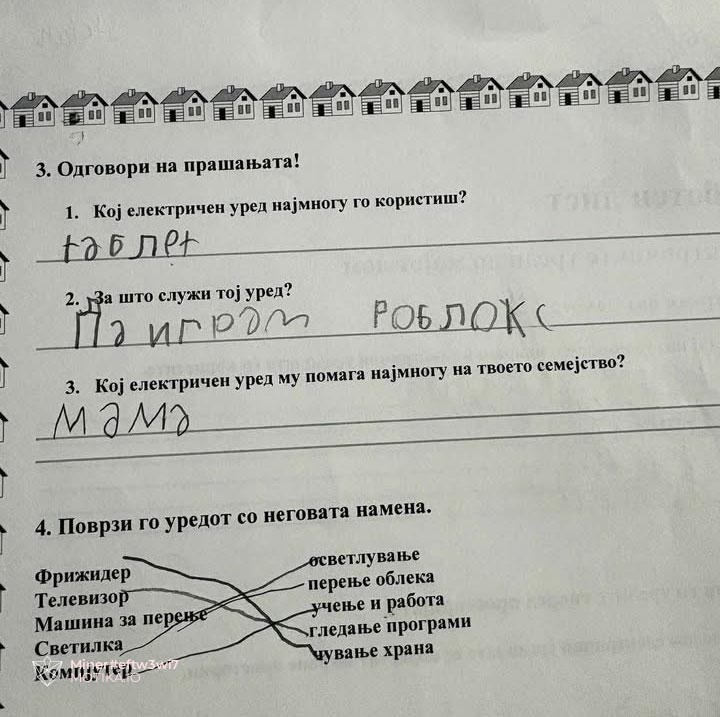 3. Одговори на прашањата!
1. Кој електричен уред најмногу го користиш?
таблет
2. За што служи тој уред?
Да играм РОБЛОКС
3. Кој електричен уред му помага најмногу на твоето семејство?
МАМА
4. Поврзи го уредот со неговата намена.
Фрижидер
Телевизор
Машина за перење
Светилка
Компјутер
осветлување
перење облека
учење и работа
гледање програми
чување храна